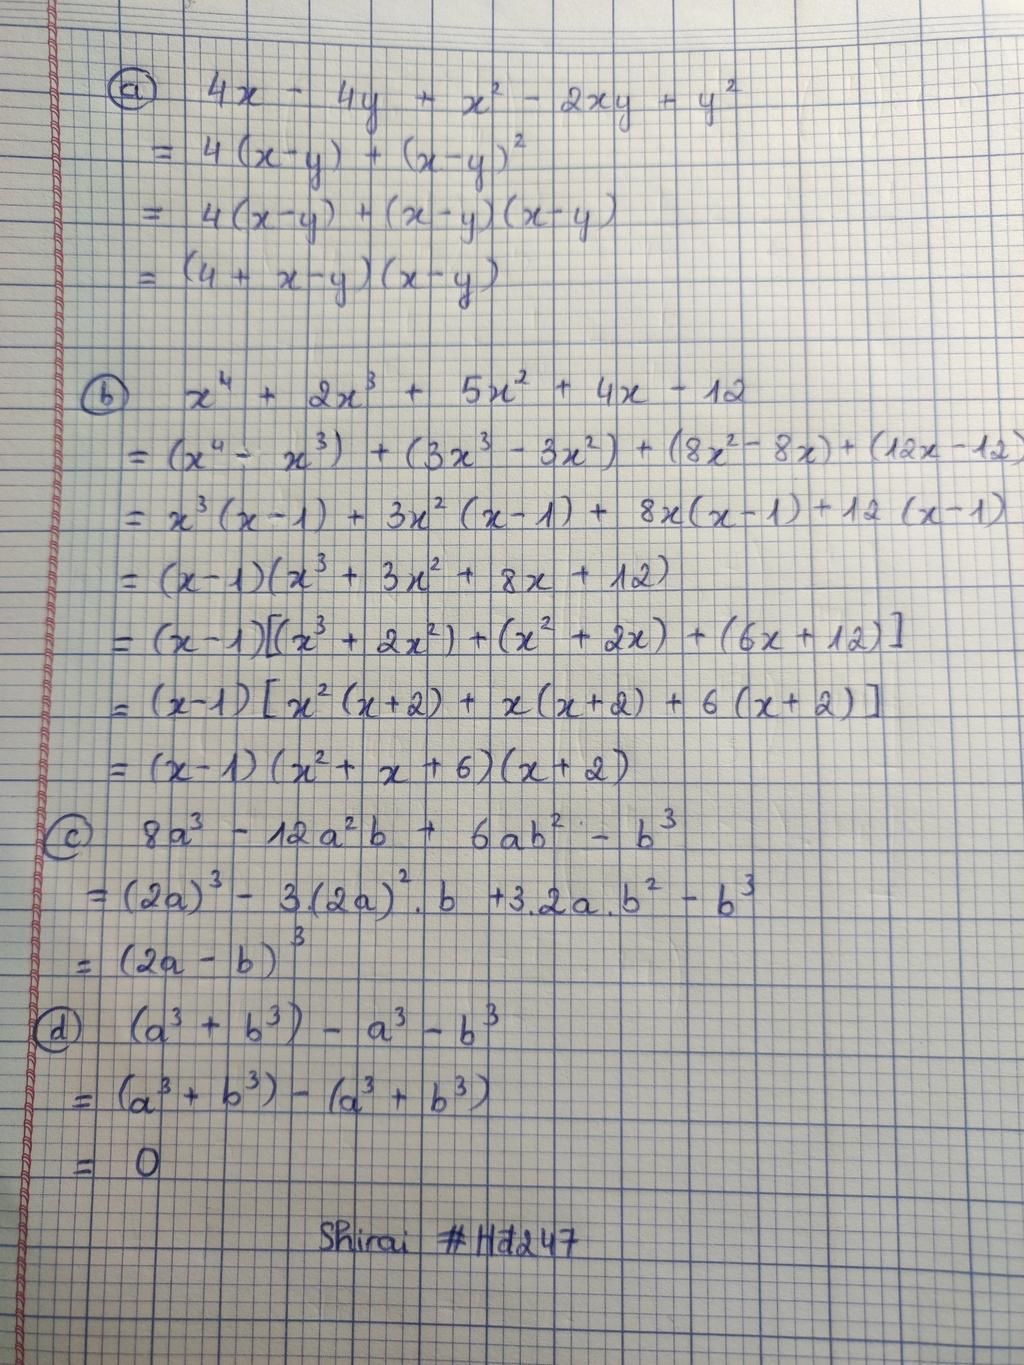 ⓐ 4x - 4y + x² - 2xy + y²
= 4(x-y) + (x-y)²
= 4(x-y) + (x-y)(x-y)
= (4 + x-y)(x-y)
ⓑ x⁴ + 2x³ + 5x² + 4x - 12
= (x⁴ - x³) + (3x³ - 3x²) + (8x² - 8x) + (12x - 12)
= x³(x-1) + 3x²(x-1) + 8x(x-1) + 12(x-1)
= (x-1)(x³ + 3x² + 8x + 12)
= (x-1)[(x³ + 2x²) + (x² + 2x) + (6x + 12)]
= (x-1)[x²(x+2) + x(x+2) + 6(x+2)]
= (x-1)(x² + x + 6)(x+2)
ⓒ 8a³ - 12a²b + 6ab² - b³
= (2a)³ - 3.(2a)².b + 3.2a.b² - b³
= (2a - b)³
ⓓ (a³ + b³) - a³ - b³
= (a³ + b³) - (a³ + b³)
= 0
Shirai #Hd247